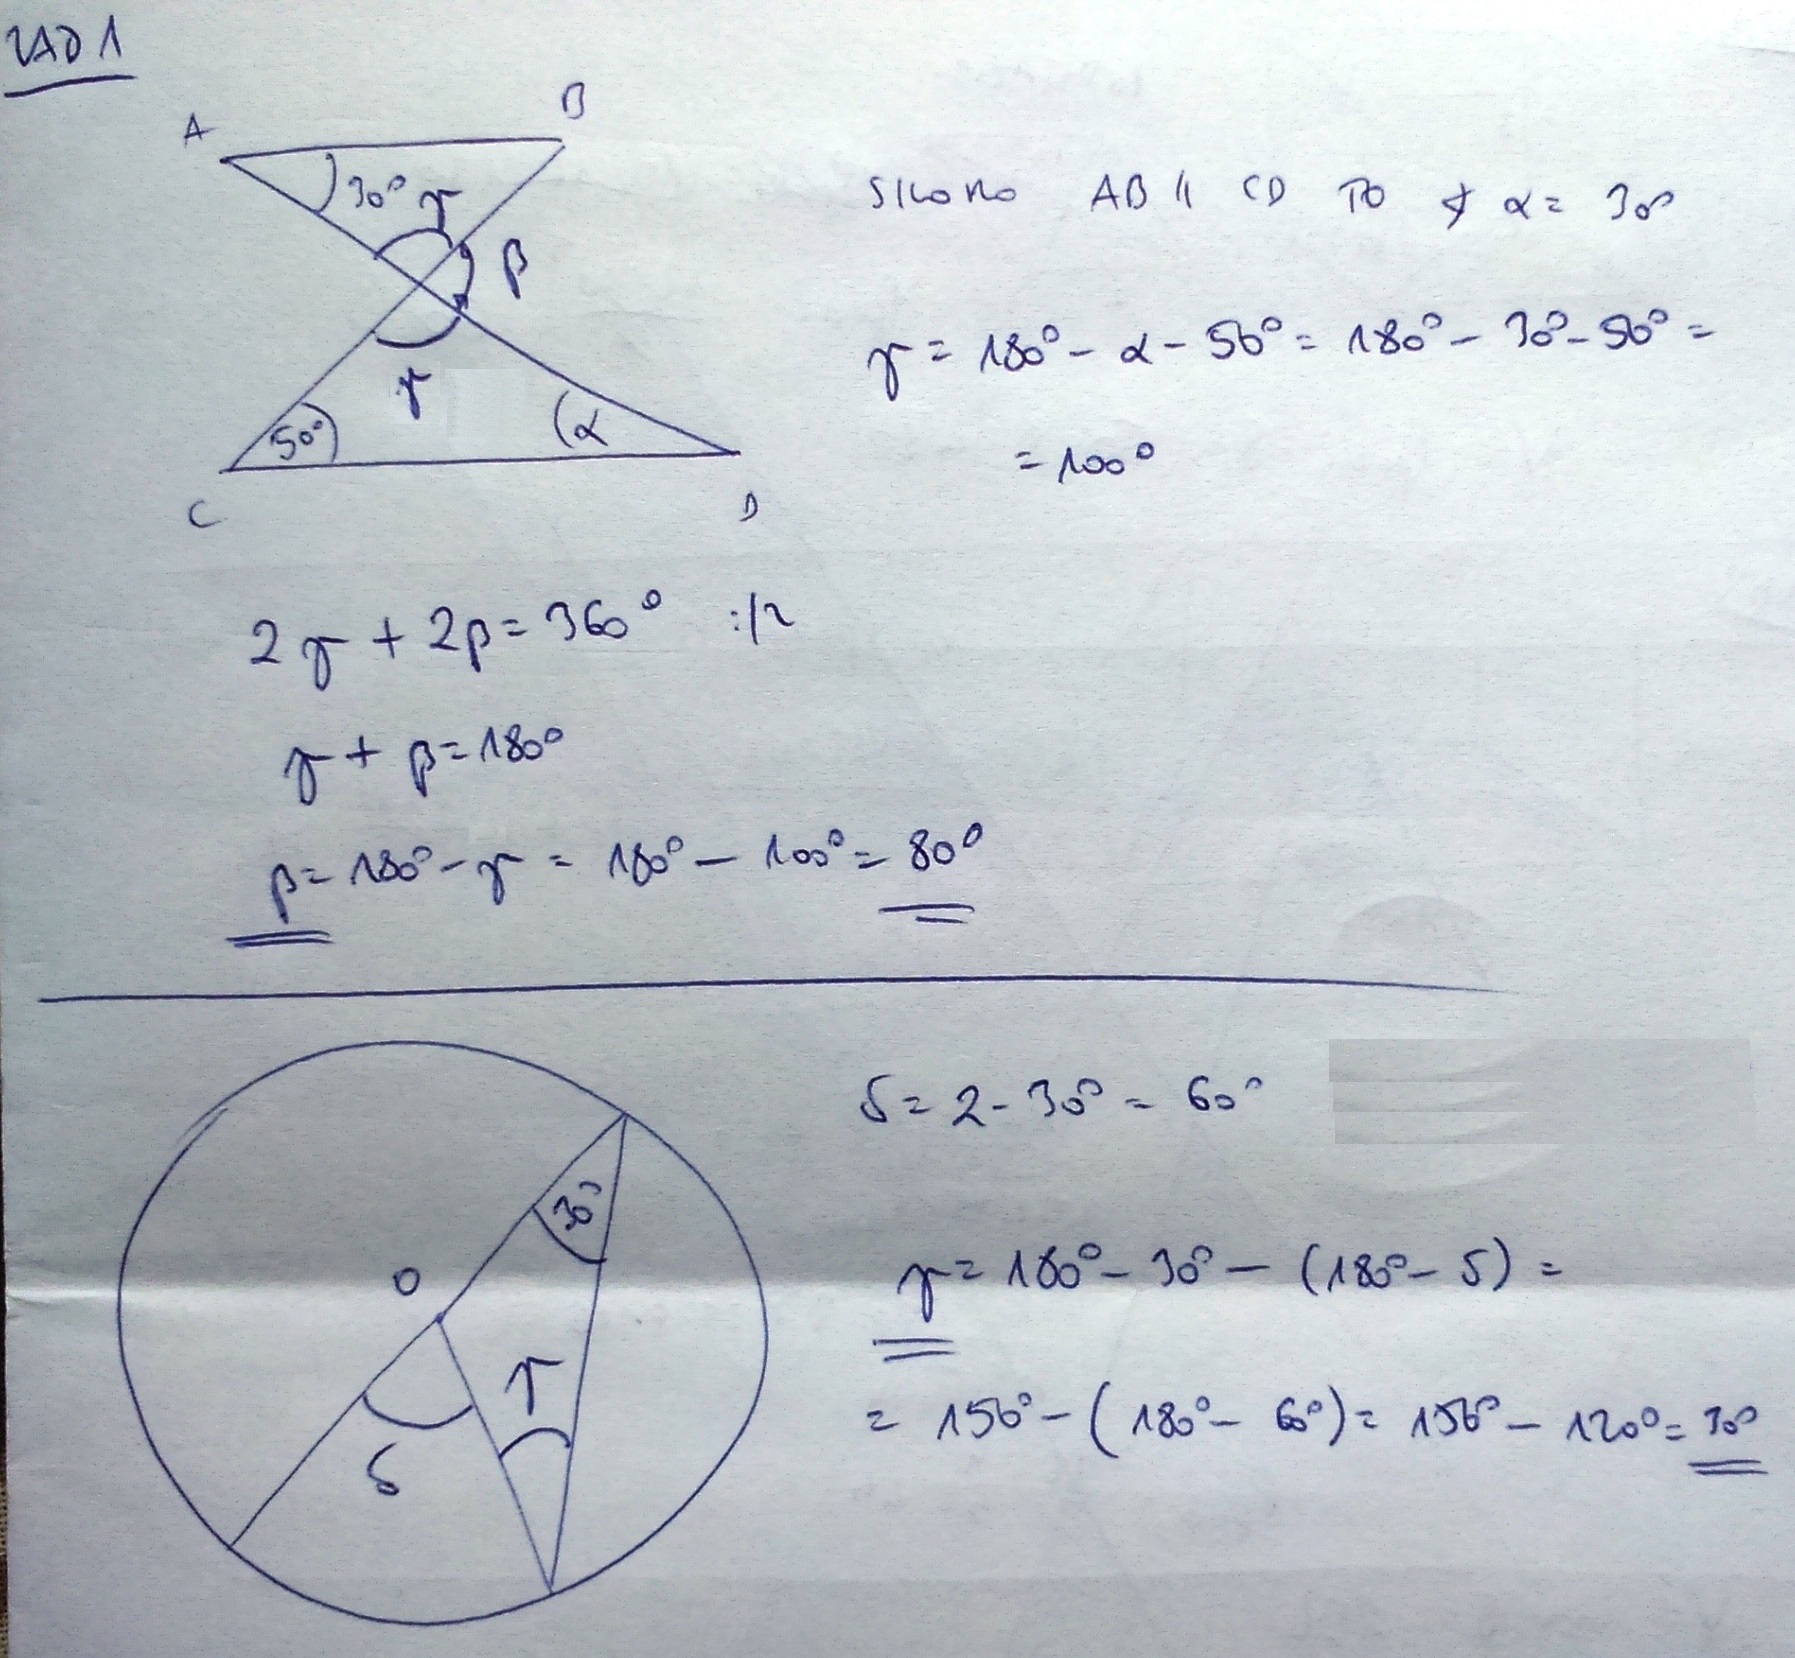 ZAD 1
A
B
30° γ
β
γ
50°
α
C
D
SKORO AB || CD TO ∢ α = 30°
γ = 180° - α - 50° = 180° - 30° - 50° =
= 100°
2γ + 2β = 360° :/2
γ + β = 180°
β = 180° - γ = 180° - 100° = 80°
30°
O
γ
δ
δ = 2 · 30° = 60°
γ = 180° - 30° - (180° - δ) =
= 150° - (180° - 60°) = 150° - 120° = 30°